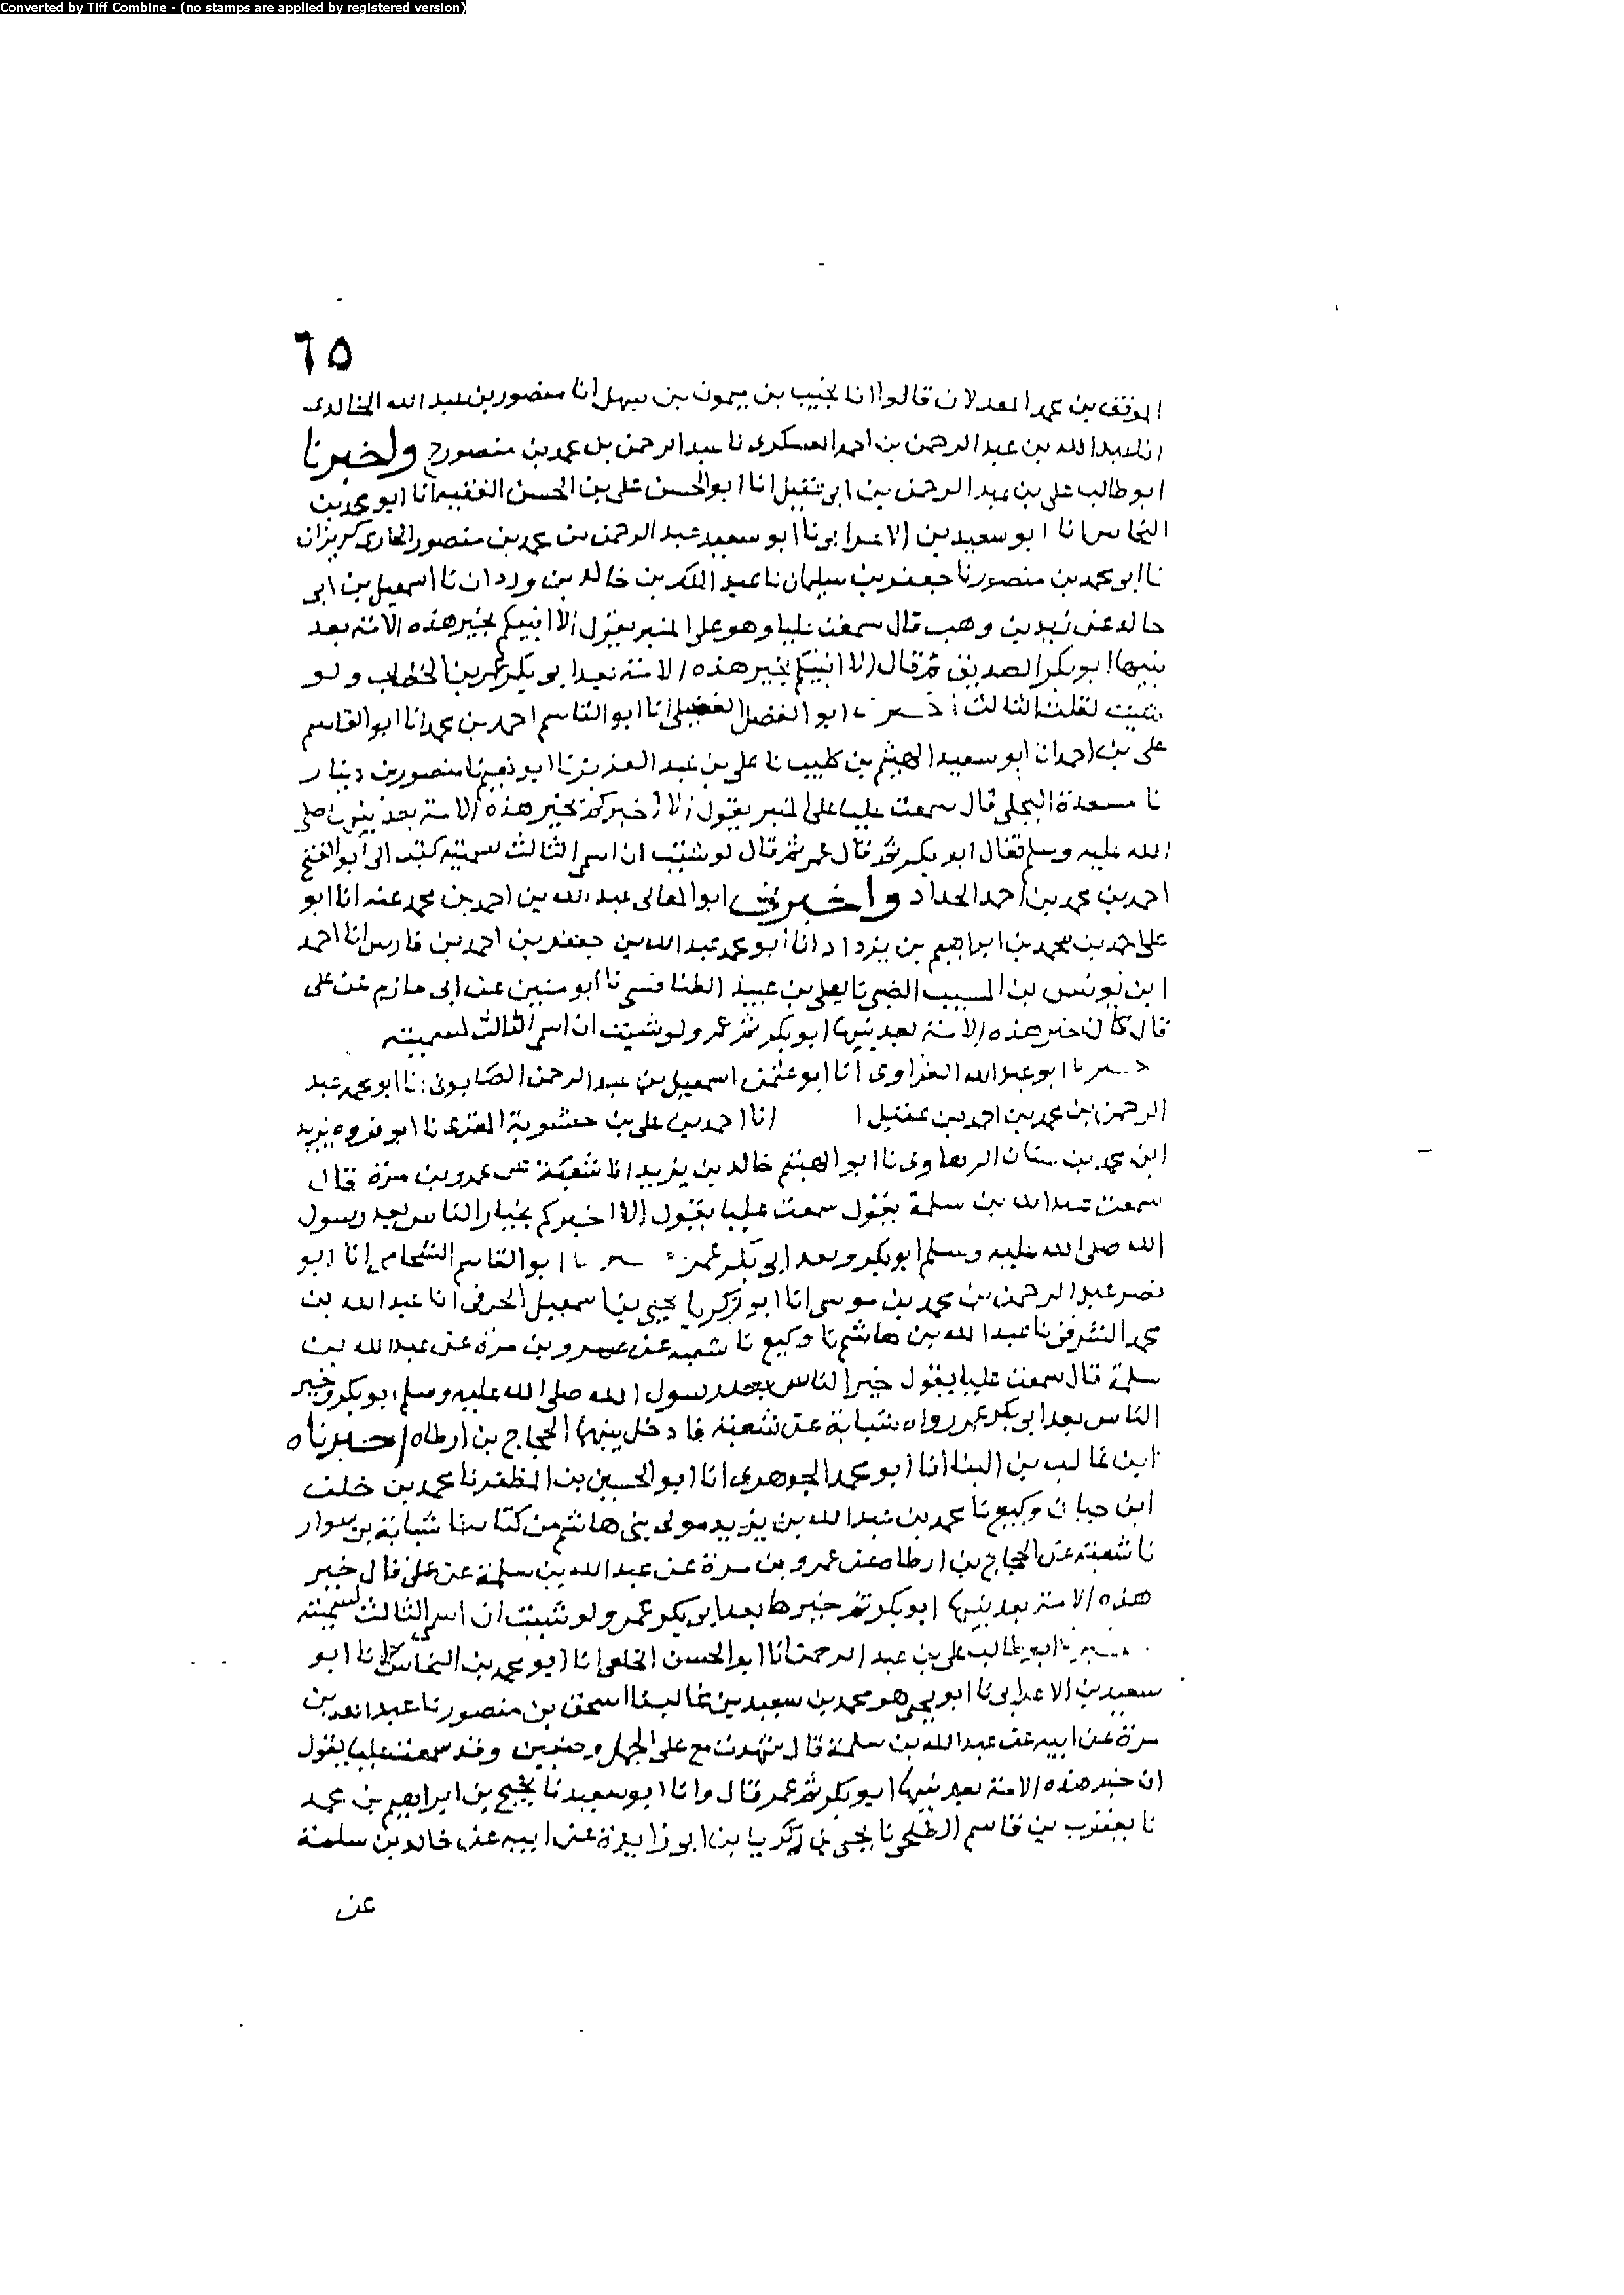 Converted by Tiff Combine - (no stamps are applied by registered version)
٦٥
الموفق بن محمد المعدلان قالوا انا نجيب بن ميمون بن سهل انا منصور بن عبد الله الخالدى
انا عبد الله بن عبد الرحمن بن احمد العسكرى نا عبد الرحمن بن محمد بن منصور ح واخبرنا
ابو طالب على بن عبد الرحمن بن ابى عقيل انا ابو الحسن على بن الحسن الفقيه انا ابو محمد بن
النحاس انا ابو سعيد بن الاعرابى نا ابو سعيد عبد الرحمن بن محمد بن منصور الحارثى كربزان
نا ابو محمد بن منصور نا جعفر بن سليمان نا عبد الملك بن خالد بن وردان نا اسمعيل بن ابى
خالد عن زيد بن وهب قال سمعت عليا وهو على المنبر يقول الا انبيكم بخير هذه الامة بعد
نبيها ابو بكر الصديق ثم قال الا انبيكم بخير هذه الامة بعد ابو بكر عمر بن الخطاب ولو
شيت لقلت الثالث ابو الفضل الفضيلى انا ابو القاسم احمد بن محمد انا ابو القاسم
على بن احمد انا ابو سعيد الهيثم بن كليب نا على بن عبد العزيز نا ابو نعيم نا منصور بن دينار
نا مسعدة البجلى قال سمعت عليا على المنبر يقول الا اخبركم بخير هذه الامة بعد نبيها صلى
الله عليه وسلم فقال ابو بكر ثم قال عمر ثم قال لو شيت ان اسمى الثالث لسميته كتب الى ابو الفتح
احمد بن محمد بن احمد الحداد واخبرنى ابو المعالى عبد الله بن احمد بن محمد عنه انا ابو
على احمد بن محمد بن ابراهيم بن يزداد انا ابو محمد عبد الله بن جعفر بن احمد بن فارس انا احمد
ابن يونس بن المسيب الضبى نا يعلى بن عبيد الطنافسى نا ابو منين عن ابى حازم عن على
قال كان خير هذه الامة بعد نبيها ابو بكر ثم عمر ولو شيت ان اسمى الثالث لسميته
ابو عبد الله الفراوى انا ابو عثمن اسمعيل بن عبد الرحمن الصابونى نا ابو محمد عبد
الرحمن بن محمد بن احمد بن عقيل انا احمد بن على بن حسنوية المقرى نا ابو فروه يزيد
ابن محمد بن سنان الرهاوى نا ابو الهيثم خالد بن يزيد انا شعبة عن عمرو بن مرة قال
سمعت عبد الله بن سلمة يقول سمعت عليا يقول الا اخبركم بخيار الناس بعد رسول
الله صلى الله عليه وسلم ابو بكر وبعد ابى بكر عمر ابو القاسم الشحامى انا ابو
نصر عبد الرحمن بن محمد بن موسى انا ابو زكريا يحيى بن اسمعيل الحربى انا عبد الله بن
محمد الشرقى نا عبد الله بن هاشم نا وكيع نا شعبه عن عمرو بن مرة عن عبد الله بن
سلمة قال سمعت عليا يقول خير الناس بعد رسول الله صلى الله عليه وسلم ابو بكر وخير
الناس بعد ابى بكر عمر رواه شبابة عن شعبة فادخل بينهما الحجاج بن ارطاه اخبرناه
ابن غالب بن البنا انا ابو محمد الجوهرى انا ابو الحسين بن المظفر نا محمد بن خلف
ابن حيان وكيع نا محمد بن عبد الله بن يزيد مولى بنى هاشم من كتابه نا شبابة بن سوار
نا شعبة عن الحجاج بن ارطاه عن عمرو بن مرة عن عبد الله بن سلمة عن على قال خير
هذه الامة بعد نبيها ابو بكر ثم خيرها بعد ابو بكر عمر ولو شيت ان اسمى الثالث لسميته
ابو طالب على بن عبد الرحمن انا ابو الحسن الخلعى انا ابو محمد بن النحاس انا ابو
سعيد بن الاعرابى نا ابو يحيى هو محمد بن سعيد بن غالب نا اسحق بن منصور نا عبد الله بن
مرة عن ابيه عن عبد الله بن سلمة قال شهدت مع على الجمل وصفين وقد سمعت عليا يقول
ان خير هذه الامة بعد نبيها ابو بكر ثم عمر قال وانا ابو سعيد نا نجيح بن ابراهيم بن محمد
نا يعقوب بن قاسم الطلحى نا يحيى بن زكريا بن ابو زايدة عن ابيه عن خالد بن سلمة
عن